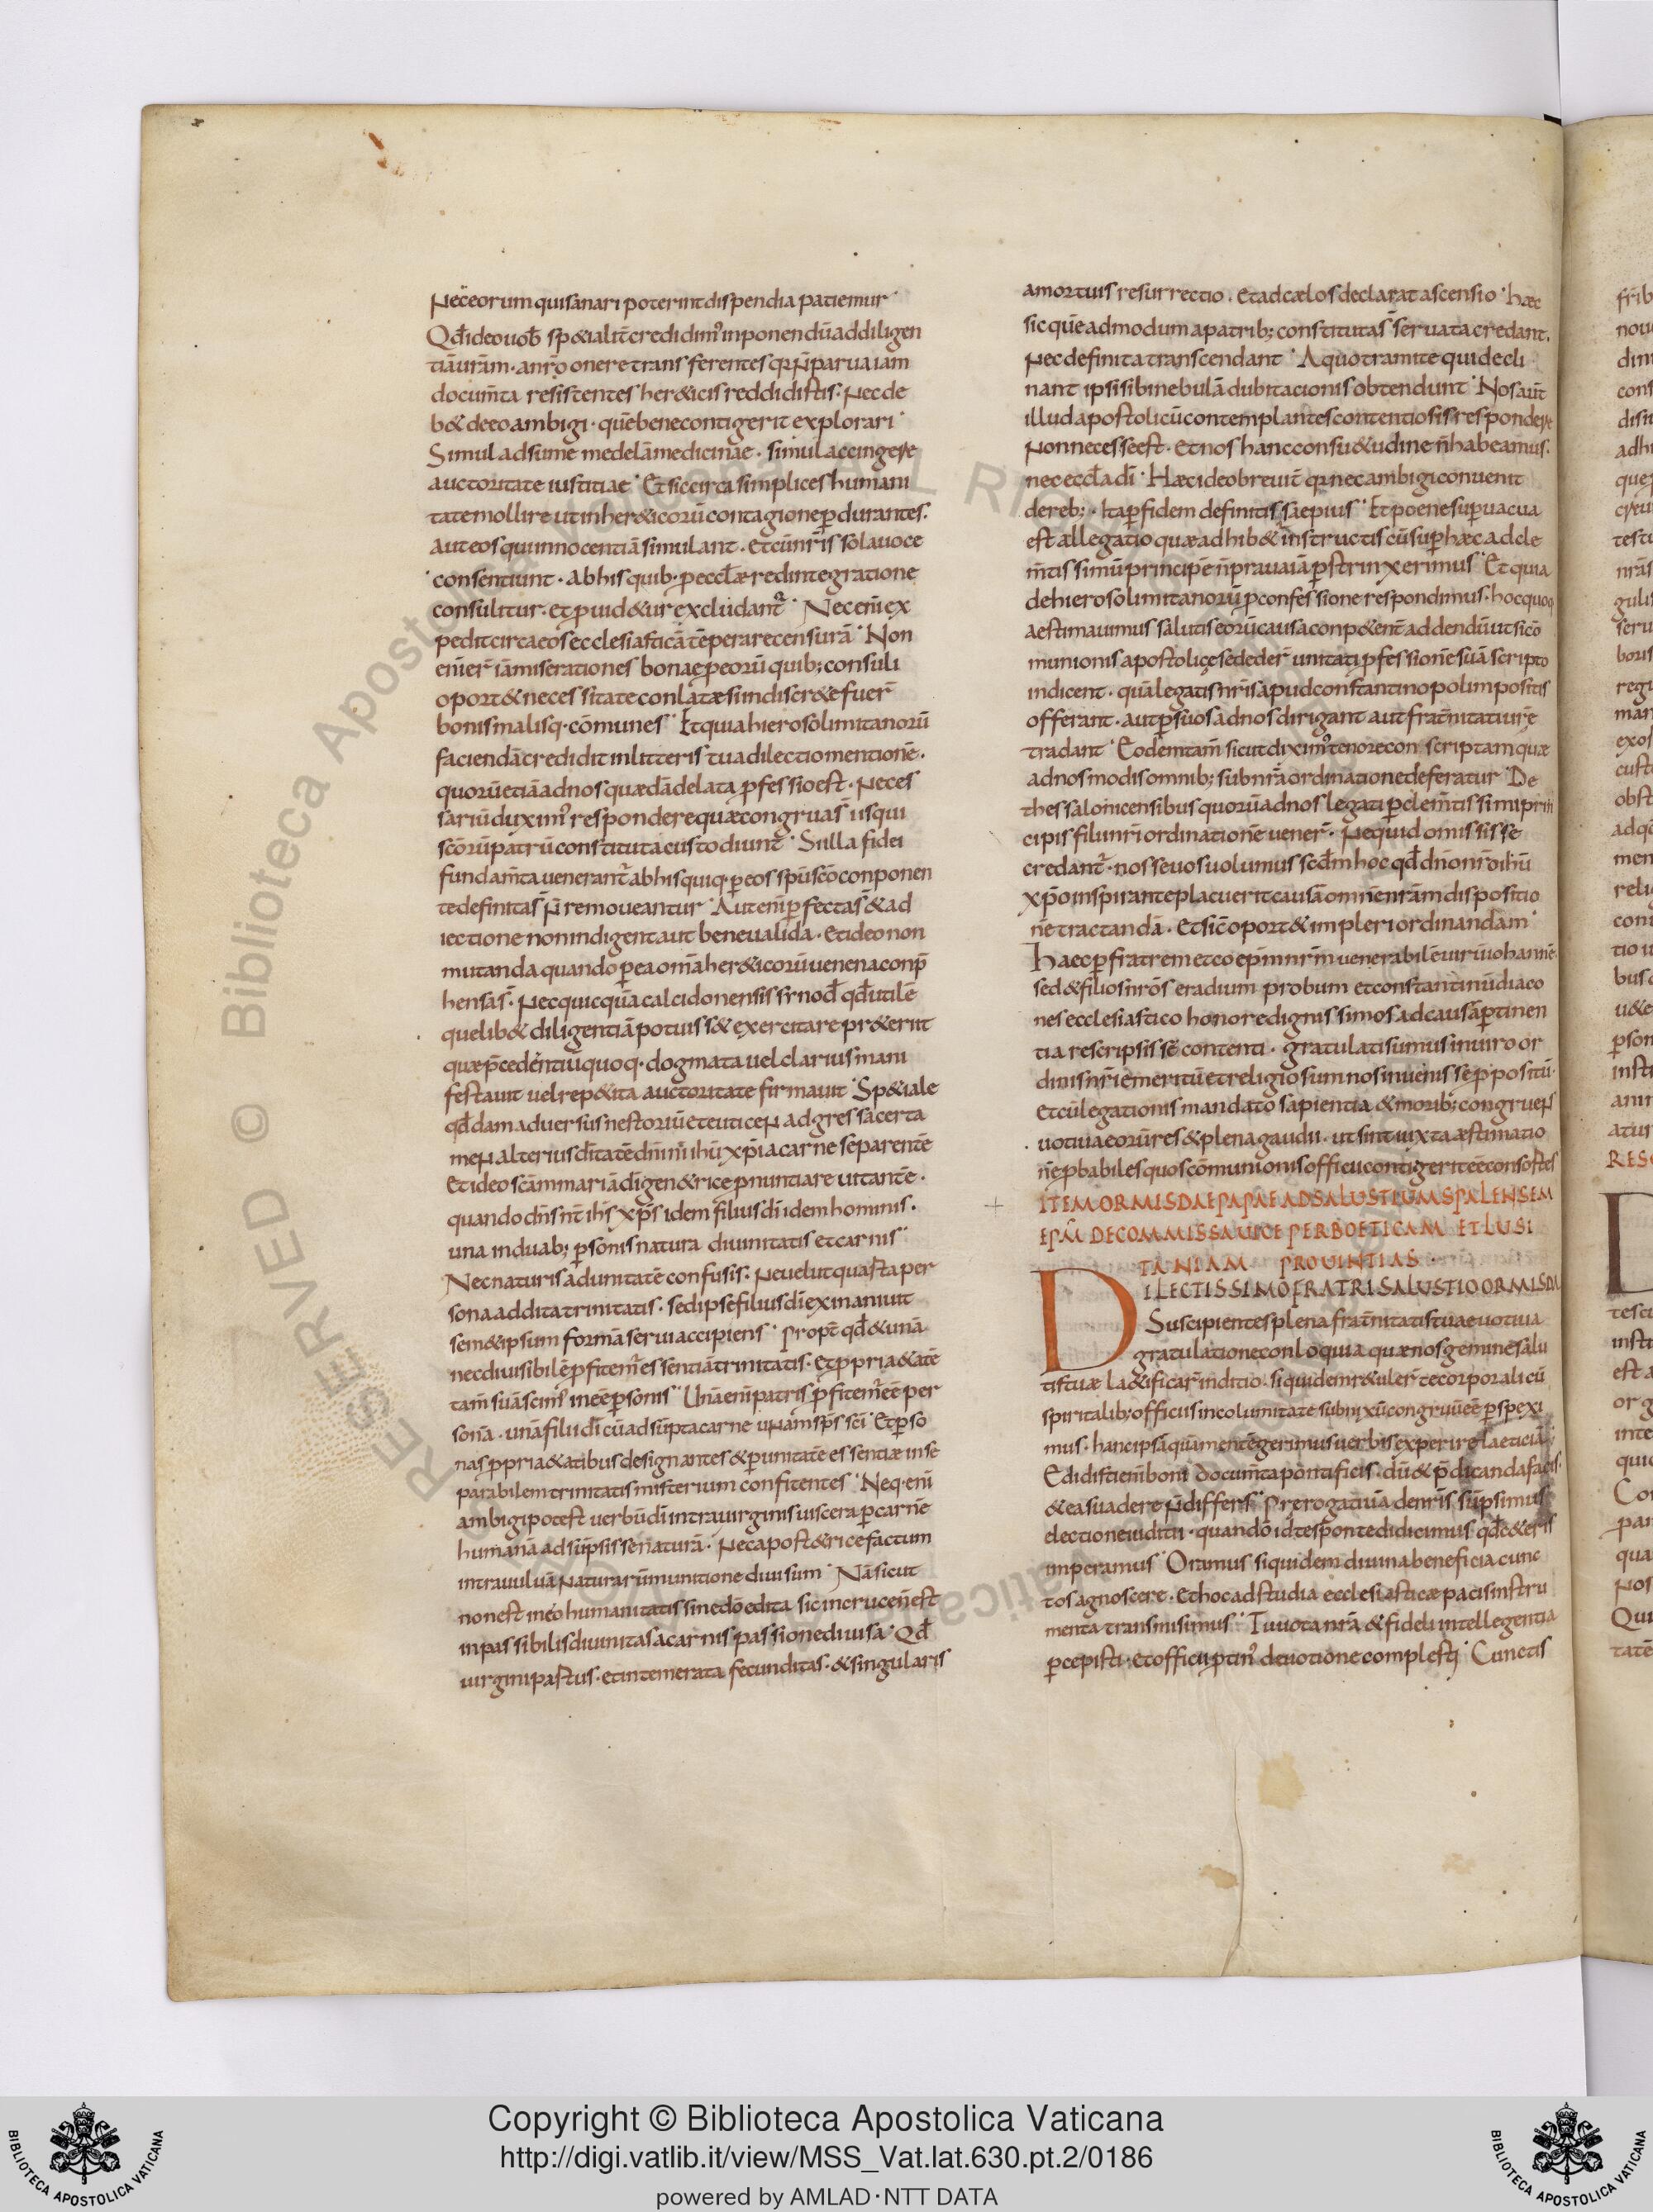 Neceorum quisanari poterint dispendia patiemur·
Qđ ideo uob̄ sp&ialit̄ credidim' inponendū addiligen
tiā urām· anr̄o onere transferentes qr̄ n̄ parua iam
docum̄ta resistentes her&icis reddidistis· Nec de
b& de eo ambigi· quē bene contigerit explorari·
Simul adsume medelā medicinae· simul accingere
auctoritate iustitiae· Et sic circa simplices humani
tate mollire ut in her&icorū contagione p̄durantes·
aut eos qui innocentiā simulant· et cū nr̄is sola uoce
consentiunt· ab his quib· p ecctæ redintegratione
consulitur· et puid&ur excludant'· Nec enī ex
pedit circa eos ecclesiasticā tēperare censurā· Non
enī er̄ iā miserationes bonae p eorū quib; consuli
oport& necessitate conlatæ si indiscr&e fuer̄
bonis malisq· cōmunes· Et quia hierosolimitanorū
faciendā credidit in litteris tua dilectio mentionē·
quorū etiā ad nos quædā delata pfessio est· Neces
sariū duxim' respondere quæ congruas̄ iis qui
scōrū patrū constituta custodiunt· Si illa fidei
fundam̄ta uenerant' ab his quiq· p eos sp̄u sc̄o conponen
te definitas̄ n̄ remoueantur· Aut enī pfectas̄ & ad
iectione non indigent aut bene ualida· et ideo non
mutanda quando p ea om̄a her&icorū uenena conp̄
hensas̄· Nec quicquā calcidonensis sinođ qđ utilē
quelib& diligentiā potuiss& exercitare pr&erit
quæ p̄cedentiū quoq· dogmata uel clarius mani
festauit uel rep&ita auctoritate firmauit· Sp&iale
qđdam aduersus nestoriū et euticeN adgressa certa
meN alterius dītatē dn̄i nr̄i ihū xp̄i a carne separentē
et ideo scām mariā dī gen&rice pnuntiare uitantē·
quando dn̄s nr̄ ihs̄ xp̄s idem filius dī idem hominis·
una in duab; psonis natura diuinitatis et carnis·
Nec naturis adunitatē confusis· Ne uelut quarta per
sona addita trinitatis· sed ipse filius dī exinaniuit
sem&ipsum formā serui accipiens· Propt̄ qđ & unā
nec diuisibilē pfitem' essentiā trinitatis· et ppria&atē
tam̄ suā scim' ineē psonis· Unā enī patris pfitem' eē per
sonā· unā filii dī cū adsūpta carne unam sp̄s sc̄i· Et pso
nas ppria&atibus designantes & p unitatē essentiæ inse
parabilem trinitatis misterium confitentes· Neq· enī
ambigi potest uerbū dī intra uirginis uiscera p carnē
humanā adsūpsisse naturā· Nec apost&rice factum
intra uuluā naturarū munitione diuisum· Nā sicut
non est in eo humanitatis sine dō edita sic in cruce n̄ est
inpassibilis diuinitas a carnis passione diuisa· Qđ
uirgini partus· et intemerata fecunditas· & singularis
a mortuis resurrectio· et ad cælos declarat ascensio· hæc
sic quēadmodum a patrib; constitutas̄ seruata credant·
Nec definita transcendant· A quo tramite qui decli
nant ipsi sibi nebulā dubitacionis obtendunt· Nos aut̄
illud apostolicū contemplantes contentiosis respondere
Non necesse est· et nos hanc consu&udinē n̄ habeamus·
nec eccła dī· Hæc ideo bretuit̄ qr̄ nec ambigi conuenit
de reb;· ita p fidem definitis saepius· Et poene supuacua
est allegatio quæ adhib& instructis cū sup hæc ad cle
m̄tissimū principē n̄ praua iā pstrinxerimus· Et quia
de hierosolimitanorū pconfessione respondimus· hoc quoq
aestimauimus salutis eorū causa conp&ent̄ addendū ut si cō
munionis apostolicę sede der̄ unitati pfessionē suā scripto
indicent· quā legatis nr̄is apud constantinopolim positis
offerant· aut p suos ad nos dirigant aut frat̄nitati ur̄e
tradant· Eodem tam̄ sicut dixim' tenore con scriptam quæ
ad nos modis omnib; sub nr̄a ordinatione deferatur· De
thessalonicensibus quorū ad nos legati p clem̄tissimi prin
cipis filii nr̄i ordinationē uener̄· Ne quid omisisse
credant'· nosse uos uolumus secđm hoc qđ dn̄o nr̄o ihū
xp̄o inspirante placuerit causā omnē nrām dispositio
nē tractandā· Et sic̄ oport& impleri ordinandam·
Haec p fratrem et coep̄m nr̄m uenerabilē uirū iohannē·
sed & filios nr̄os eradium probum et constantinū diaco
nes ecclesiastico honore dignissimos ad causā ptinen
tia rescripsisse contenti· gratulati sumus in uiro or
dinis nr̄i emeritū et religiosum nos inuenisse ppositū·
et cū legationis mandato sapientia & morib; congrueN
uotiua eorū res & plena gaudii· ut sint iuxta æstimatio
nē pbabiles quos cōmunionis officii contigerit eē consortes
ITEM ORMISDAE PAPAE AD SALUSTIUM SPALENSEM
EPM̄ DE COMMISSA UICE PER BOETICAM ET LUSI
TANIAM PROUINTIAS·
DILECTISSIMO FRATRI SALUSTIO ORMISDA
Suscipientes plena frat̄nitatis tuae uotiua
gratulatione conloquia quæ nos gemine salu
tis tuæ la&ificar̄ inditio· siquidem r&uler̄ te corporali cū
spiritalib; officiis incolumitate subnixū congruū eē pspexi
mus· hanc ipsā quā mente gerimus uerbis experire laeticiā·
Edidisti enī boni docum̄ta pontificis· dū & p̄dicanda facis·
& ea suadere n̄ differs· Prerogatiuā de nr̄is sūpsimus
electione iuditii· quando id te sponte didicimus qđ c&eris
imperamus· Oramus siquidem diuina beneficia cunc
tos agnoscere· et hoc ad studia ecclesiasticæ pacis instru
menta transmisimus· Tu uota nr̄a & fideli intellegentia
pcepisti· et officii ptin' deuotione complesti· Cunctis
Copyright © Biblioteca Apostolica Vaticana
http://digi.vatlib.it/view/MSS_Vat.lat.630.pt.2/0186
powered by AMLAD·NTT DATA
BIBLIOTECA APOSTOLICA VATICANA
BIBLIOTECA APOSTOLICA VATICANA